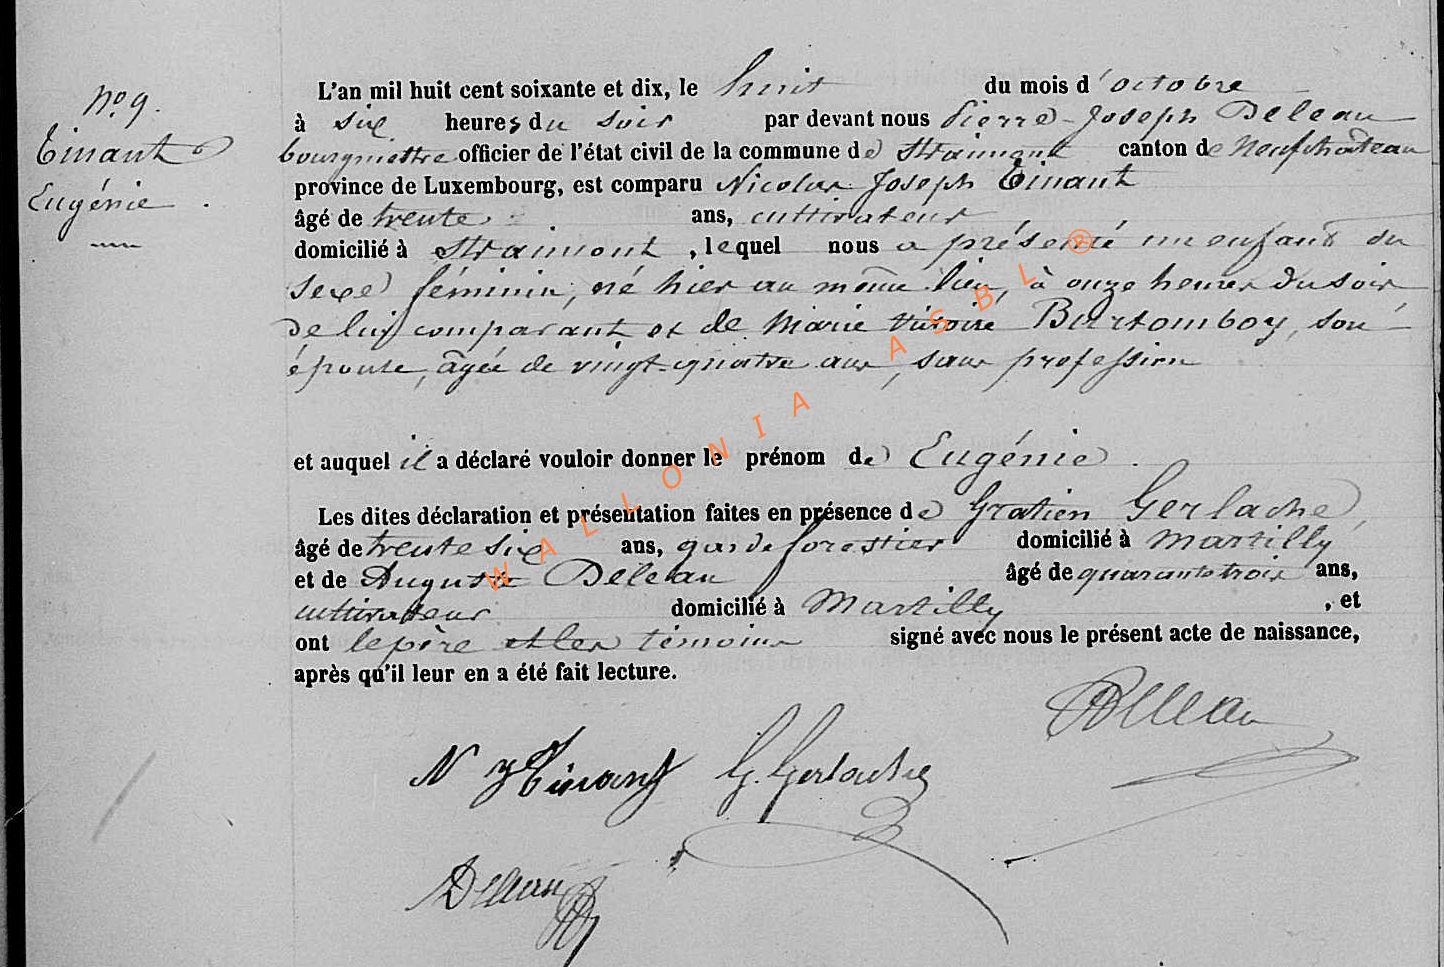 No 9.
Tinant
Eugénie
L'an mil huit cent soixante et dix, le huit du mois d'octobre
à six heures du soir par devant nous Pierre-Joseph Deleau
bourgmestre officier de l'état civil de la commune de Straimont canton de Neufchâteau
province de Luxembourg, est comparu Nicolas Joseph Tinant
âgé de trente ans, cultivateur
domicilié à Straimont, lequel nous a présenté un enfant du
sexe féminin, né hier au même lieu, à onze heures du soir
de lui comparant et de Marie Victoire Burtomboy, son
épouse, âgée de vingt-quatre ans, sans profession
et auquel il a déclaré vouloir donner le prénom de Eugénie.
Les dites déclaration et présentation faites en présence de Gratien Gerlache,
âgé de trente six ans, garde forestier domicilié à Martilly
et de Auguste Deleau âgé de quarante trois ans,
cultivateur domicilié à Martilly, et
ont le père et les témoins signé avec nous le présent acte de naissance,
après qu'il leur en a été fait lecture.
Deleau
N J Tinant G. Gerlache
Deleau
WALLONIA ASBL ®